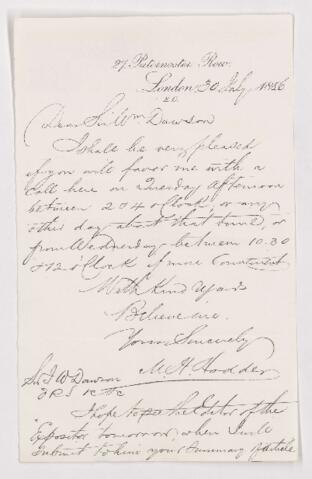 27, Paternoster Row,
London 30 July 1886
E.C.
Dear Sir Wm Dawson
I shall be very pleased
if you will favor me with a
call here on Tuesday Afternoon
between 2 & 4 o'Clock, or any
other day about that time, or
from Wednesday between 10.30
& 12 o'Clock if more Convenient
With Kind regards
Believe me
Yours Sincerely
M. H. Hodder
Sir J W Dawson
F R S &c &c
I hope to see the Editor of the
Expositor tomorrow, when I will
Submit to him your Summary of Article